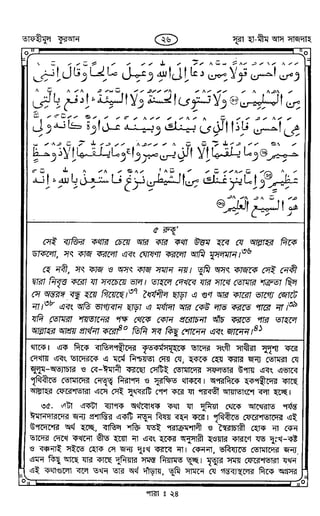 তাফহীমুল কুরআন
২৬
সূরা হা-মীম আস সাজদাহ
وَمَنْ أَحْسَنُ قَوْلًا مِّمَّنْ دَعَا إِلَى اللهِ وَعَمِلَ صَالِحًا وَّقَالَ إِنَّنِي
مِنَ الْمُسْلِمِينَ ۝ وَلَا تَسْتَوِي الْحَسَنَةُ وَلَا السَّيِّئَةُ ۚ اِدْفَعْ بِالَّتِي
هِيَ أَحْسَنُ فَإِذَا الَّذِي بَيْنَكَ وَبَيْنَهُ عَدَاوَةٌ كَأَنَّهُ وَلِيٌّ
حَمِيمٌ ۝ وَمَا يُلَقّٰهَا إِلَّا الَّذِينَ صَبَرُوا ۚ وَمَا يُلَقّٰهَا إِلَّا ذُو حَظٍّ
عَظِيمٍ ۝ وَإِمَّا يَنْزَغَنَّكَ مِنَ الشَّيْطٰنِ نَزْغٌ فَاسْتَعِذْ بِاللهِ ۚ إِنَّهُ
هُوَ السَّمِيعُ الْعَلِيمُ ۝
৫ রুকূ'
সেই ব্যক্তির কথার চেয়ে আর কার কথা উত্তম হবে যে আল্লাহর দিকে
ডাকলো, সৎ কাজ করলো এবং ঘোষণা করলো আমি মুসলমান।৩৬
হে নবী, সৎ কাজ ও অসৎ কাজ সমান নয়। তুমি অসৎ কাজকে সেই নেকী
দ্বারা নিবৃত্ত করো যা সবচেয়ে ভাল। তাহলে দেখবে যার সাথে তোমার শত্রুতা ছিল
সে অন্তরঙ্গ বন্ধু হয়ে গিয়েছে।৩৭ ধৈর্যশীল ছাড়া এ গুণ আর কারো ভাগ্যে জোটে
না।৩৮ এবং অতি ভাগ্যবান ছাড়া এ মর্যাদা আর কেউ লাভ করতে পারে না।৩৯
যদি তোমরা শয়তানের পক্ষ থেকে কোন প্ররোচনা আঁচ করতে পার তাহলে
আল্লাহর আশ্রয় প্রার্থনা করো৪০ তিনি সব কিছু শোনেন এবং জানেন।৪১
থাকে। এক দিকে বাতিলপন্থীদের কৃতকর্মসমূহকে তাদের সংগী সাথীরা সুদৃশ্য করে
দেখায় এবং তাদেরকে এ মর্মে নিশ্চয়তা দেয় যে, হককে হেয় করার জন্য তোমরা যে
জুলুম-অত্যাচার ও বে-ঈমানী করছো সেটিই তোমাদের সফলতার উপায় এবং এভাবে
পৃথিবীতে তোমাদের নেতৃত্ব নিরাপদ ও সুরক্ষিত থাকবে। অপরদিকে হকপন্থীদের কাছে
আল্লাহর ফেরেশতারা এসে সেই সুখবরটি পেশ করে যা পরবর্তী আয়াতাংশে বলা হচ্ছে।
৩৫. এটা একটা ব্যাপক অর্থবোধক কথা যা দুনিয়া থেকে আখেরাত পর্যন্ত
ঈমানদারদের জন্য প্রশান্তির একটি নতুন বিষয় বহন করে। পৃথিবীতে ফেরেশতাদের এই
উপদেশের অর্থ হচ্ছে, বাতিল শক্তি যতই পরাক্রমশালী ও স্বৈরাচারী হোক না কেন
তাদের দেখে কখনো ভীত হয়ো না এবং হকের অনুসারী হওয়ার কারণে যত দুঃখ-কষ্ট
ও বঞ্চনাই সইতে হোক সে জন্য দুঃখ করবে না। কেননা, ভবিষ্যতে তোমাদের জন্য
এমন কিছু আছে যার কাছে দুনিয়ার সমস্ত নিয়ামত তুচ্ছ। মৃত্যুর সময় ফেরেশতারা যখন
এই কথাগুলো বলে তখন তার অর্থ দাঁড়ায়, তুমি সামনে যে গন্তব্যস্থলের দিকে অগ্রসর
পারা : ২৪